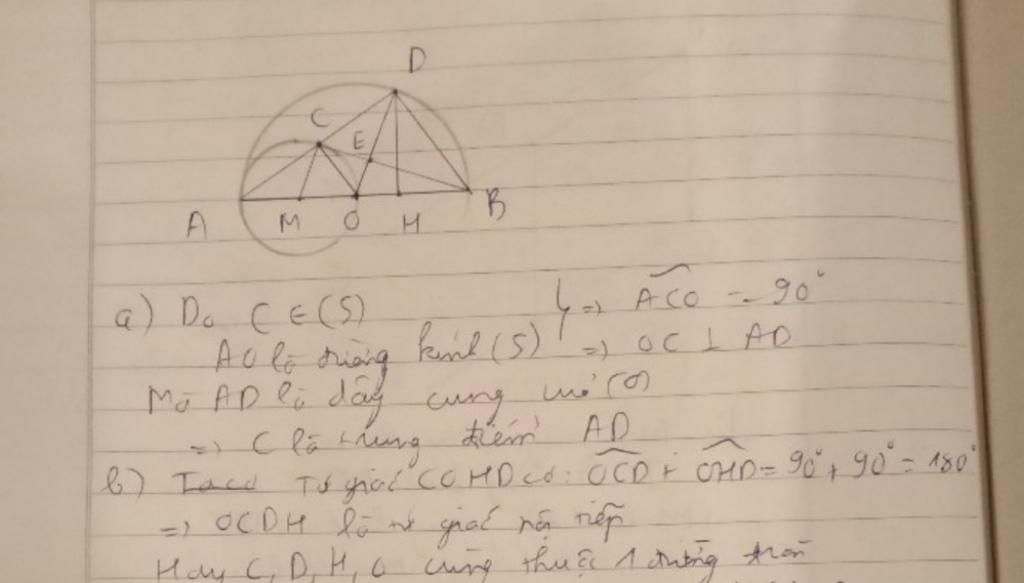 D
C
E
A M O H B
a) Do C ∈ (S) } => ACO = 90°
AO là đường kính (S) => OC ⊥ AD
Mà AD là dây cung của (O)
=> C là trung điểm AD
b) Tứ giác COHD có: OCD + OHD = 90° + 90° = 180°
=> OCDH là tứ giác nội tiếp
Hay C, D, H, O cùng thuộc 1 đường tròn